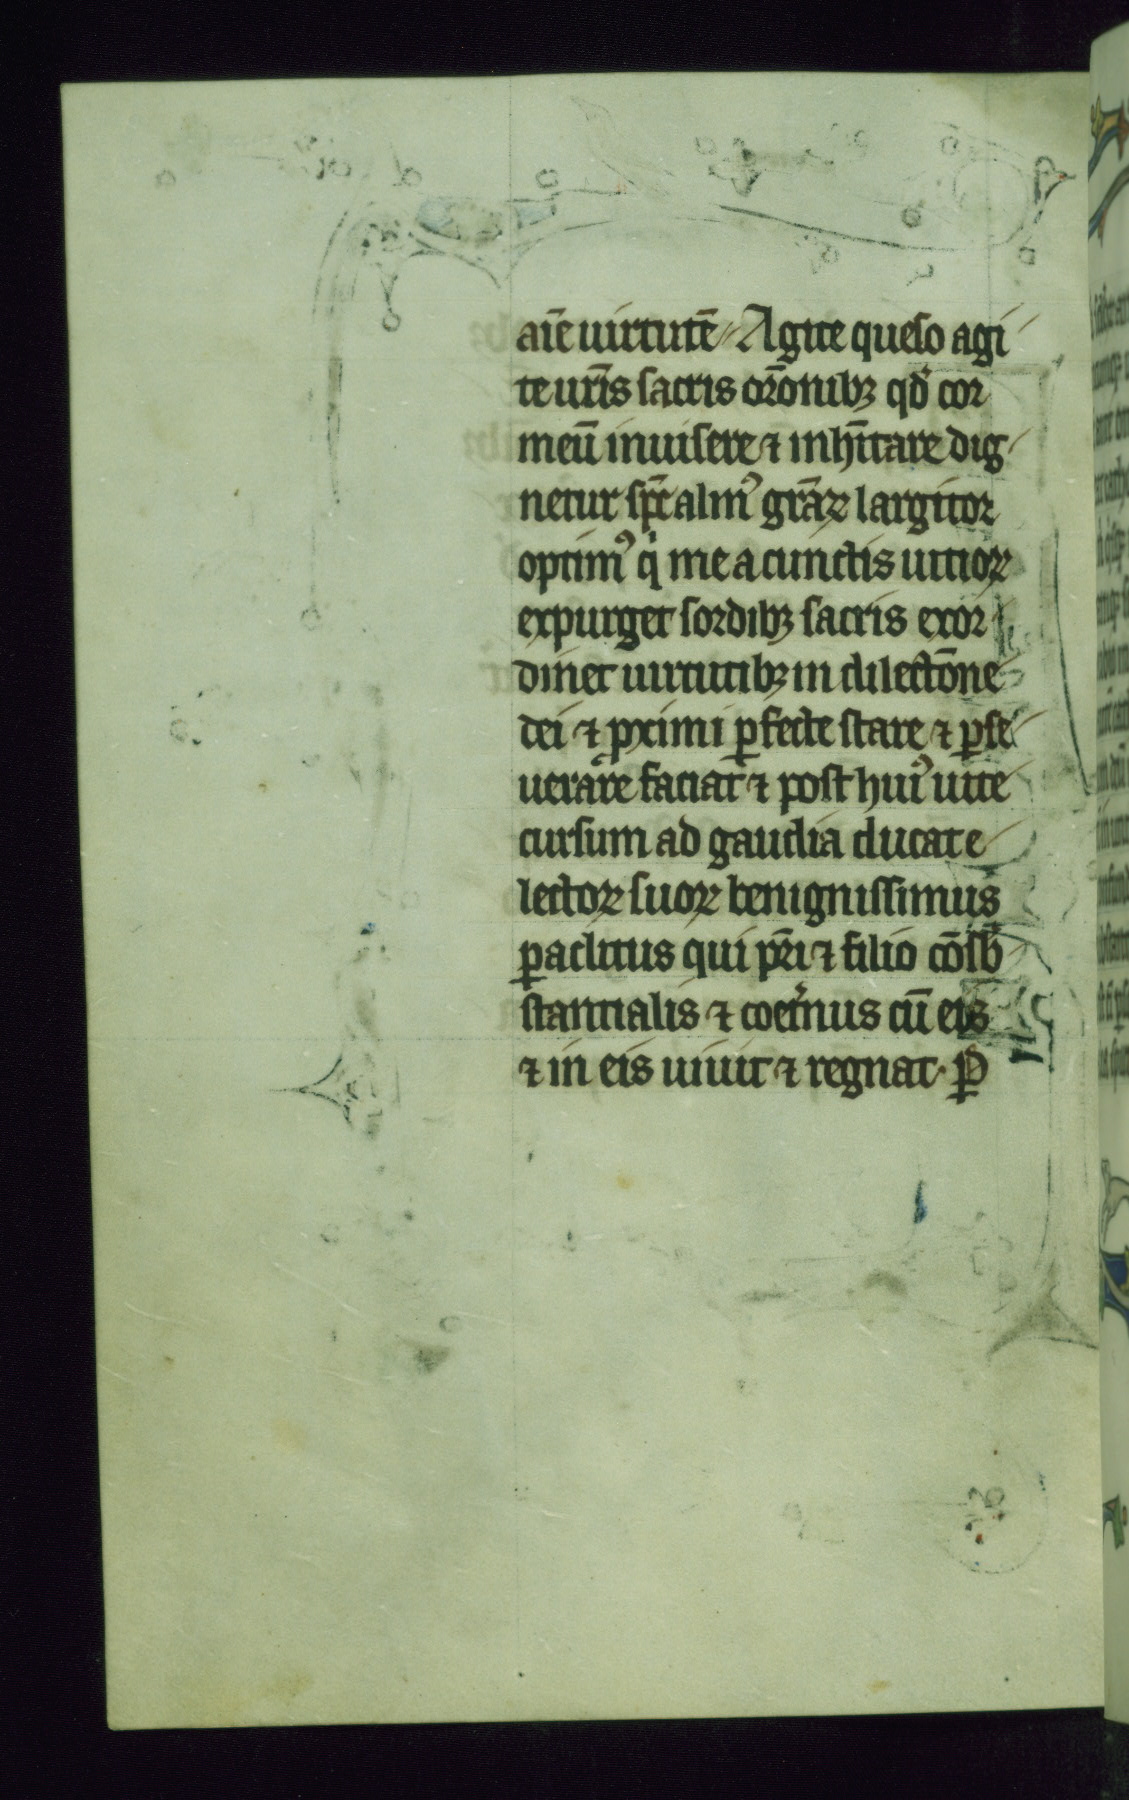 aīe uirtutē Agite queso agi
te urīs sacris orōnibꝫ qđ cor
meū inuisere ⁊ inhītare dig
netur sp̄c almꝰ grāꝝ largitor
optimꝰ qͥ me a cunctis uitioꝝ
expurget sordibꝫ sacris exor
dinet uirtutibꝫ in dilectōne
dei ⁊ ꝓximi ꝑfecte stare ⁊ ꝑse
uerare faciat ⁊ post huiꝰ uite
cursum ad gaudia ducat e
lectoꝝ suoꝝ benignissimus
ꝑaclitus qui pr̄i ⁊ filio cōsb̄
stantialis ⁊ coet͛nus cū eis
⁊ in eis uiuit ⁊ regnat · ꝑ